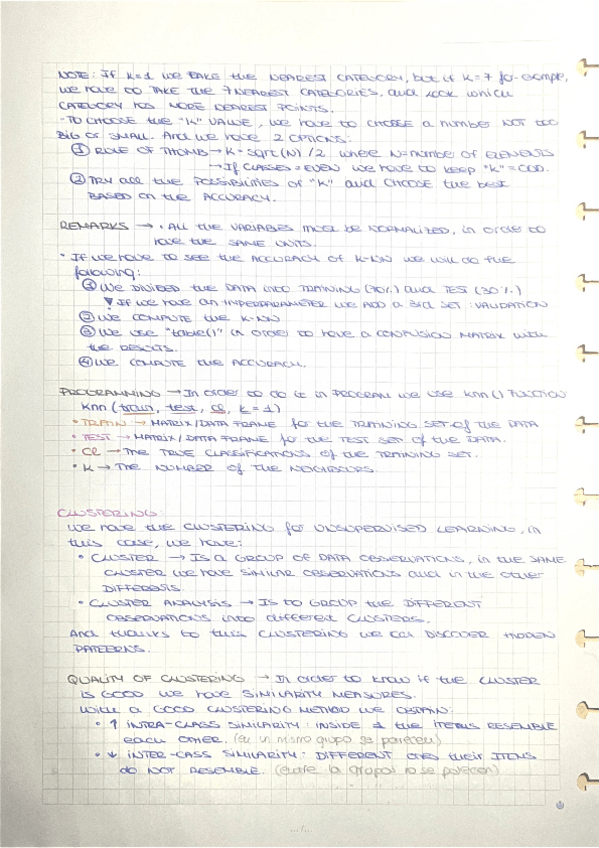 NOTE: If K=1 we take the NEAREST CATEGORY, but if K=7 for example,
we have to take the 7 nearest categories, and look which
category has more nearest points.
- To choose the "K" value, we have to choose a number not too
big or small. And we have 2 options:
① Role of thomb → K = sqrt(N)/2 where N = number of elements
→ If classes = even we have to keep "K" = odd.
② Try all the possibilities of "K" and choose the best
based on the accuracy.
REMARKS → • All the variables must be normalized, in order to
have the same units.
• If we have to see the accuracy of K-NN we will do the
following:
① We divided the data into training (70%) and test (30%)
▼ If we have an hyperparameter we add a 3rd set: validation
② We compute the K-NN
③ We use "table()" in order to have a confusion matrix with
the results.
④ We compute the accuracy.
PROGRAMMING → In order to do it in program we use knn() function
knn (train, test, cl, k = 1)
• TRAIN → Matrix/data frame for the training set of the data
• TEST → Matrix/data frame for the test set of the data.
• Cl → The true classifications of the training set.
• K → The number of the neighbours.
CLUSTERING:
We have the clustering for unsupervised learning, in
this case, we have:
• CLUSTER → Is a group of data observations, in the same
cluster we have similar observations and in the other
differents.
• CLUSTER ANALYSIS → Is to group the different
observations into different clusters.
And thanks to this clustering we can discover hidden
patterns.
QUALITY OF CLUSTERING → In order to know if the cluster
is good we have similarity measures.
With a good clustering method we obtain:
• ↑ INTRA-CLASS SIMILARITY: Inside the items resemble
each other. (en un mismo grupo se parecen)
• ↓ INTER-CASS SIMILARITY: Different ones their items
do not resemble. (entre grupos no se parecen)